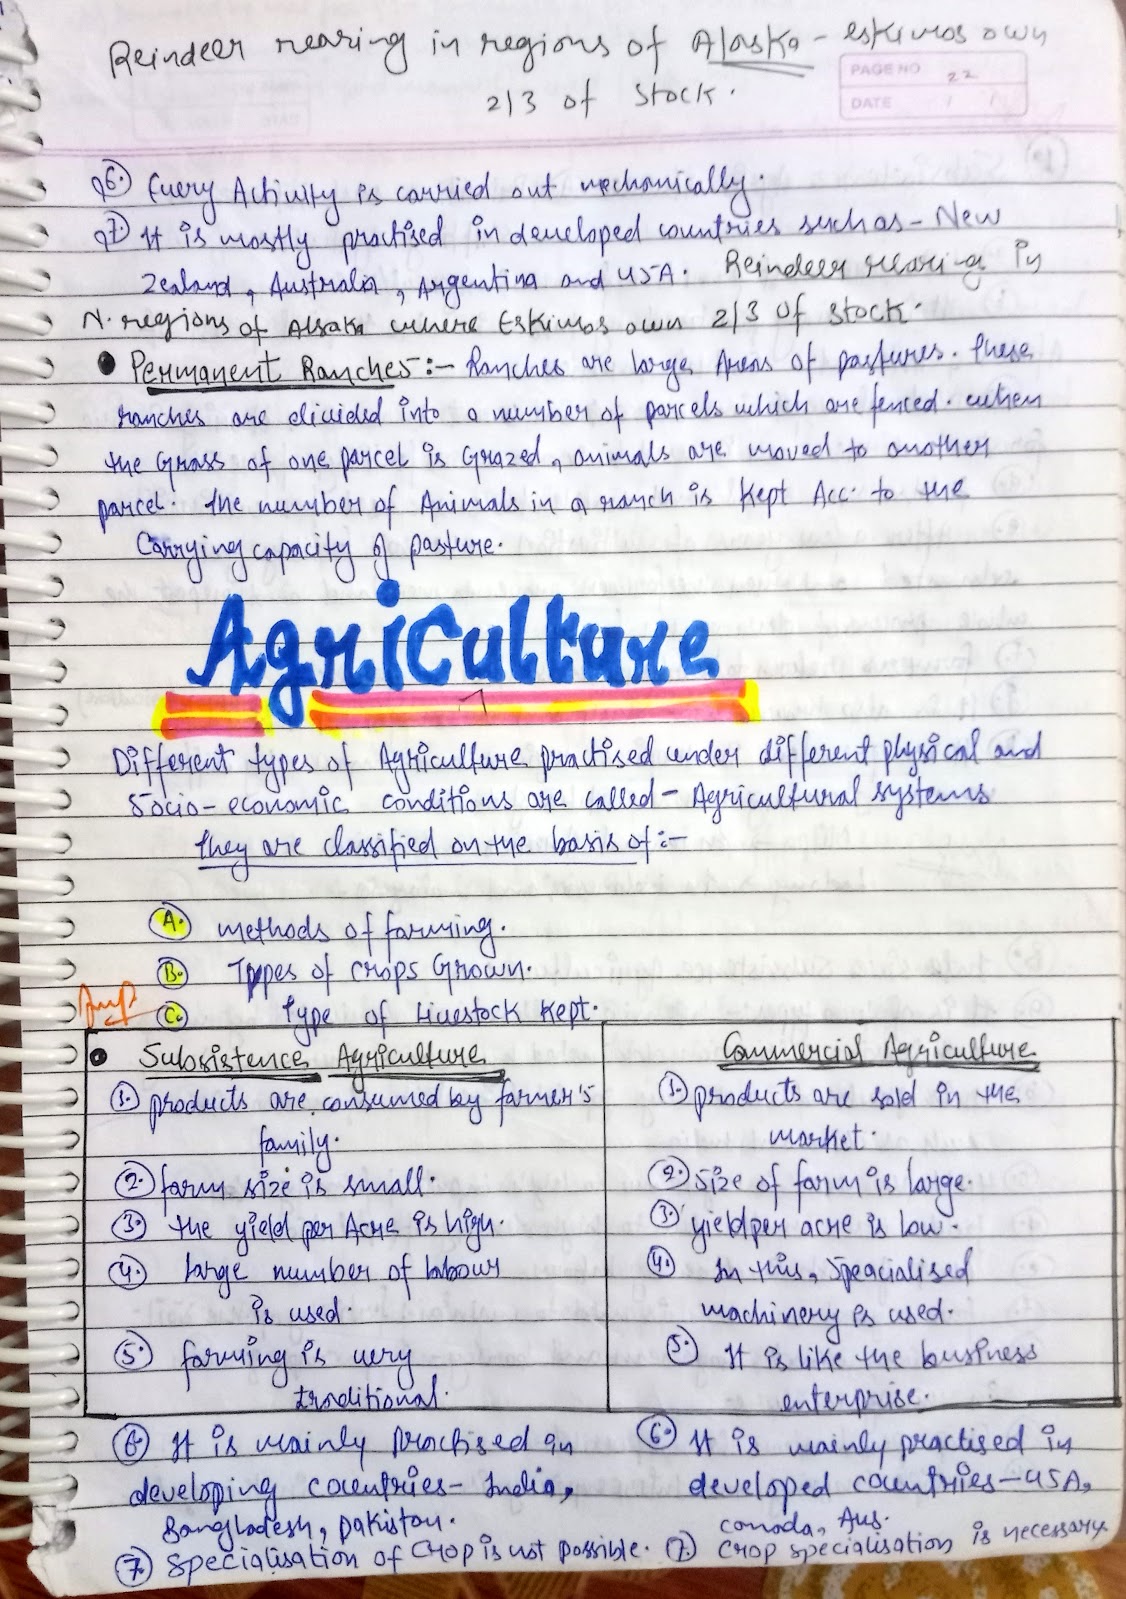 Reindeer rearing in regions of Alaska - eskimos own
2/3 of stock.
PAGE NO 22
DATE / /
6. Every Activity is carried out mechanically.
7. It is mostly practised in developed countries such as - New
Zealand, Australia, Argentina and USA. Reindeer rearing in
N. regions of Alsaka where Eskimos own 2/3 of stock.
• Permanent Ranches:- Ranches are large Areas of pastures. These
ranches are divided into a number of parcels which are fenced. when
the Grass of one parcel is Grazed, animals are moved to another
parcel. the number of Animals in a ranch is Kept Acc. to the
Carrying capacity of pasture.
Agriculture
Different types of Agriculture practised under different physical and
Socio-economic conditions are called - Agricultural systems
They are classified on the basis of:-
A. methods of farming.
B. Types of crops Grown.
Imp
C. Type of Livestock Kept.
• Subsistence Agriculture
1. products are consumed by farmer's
family.
2. farm size is small.
3. the yield per Acre is high.
4. large number of labour
is used.
5. farming is very
traditional.
6. It is mainly practised in
developing countries - India,
Bangladesh, pakistan.
7. Specialisation of crop is not possible.
Commercial Agriculture
1. products are sold in the
market.
2. Size of farm is large.
3. yield per acre is low.
4. In this, Speacialised
machinery is used.
5. It is like the business
enterprise.
6. It is mainly practised in
developed countries - USA,
canada, Aus.
7. crop specialisation is necessary